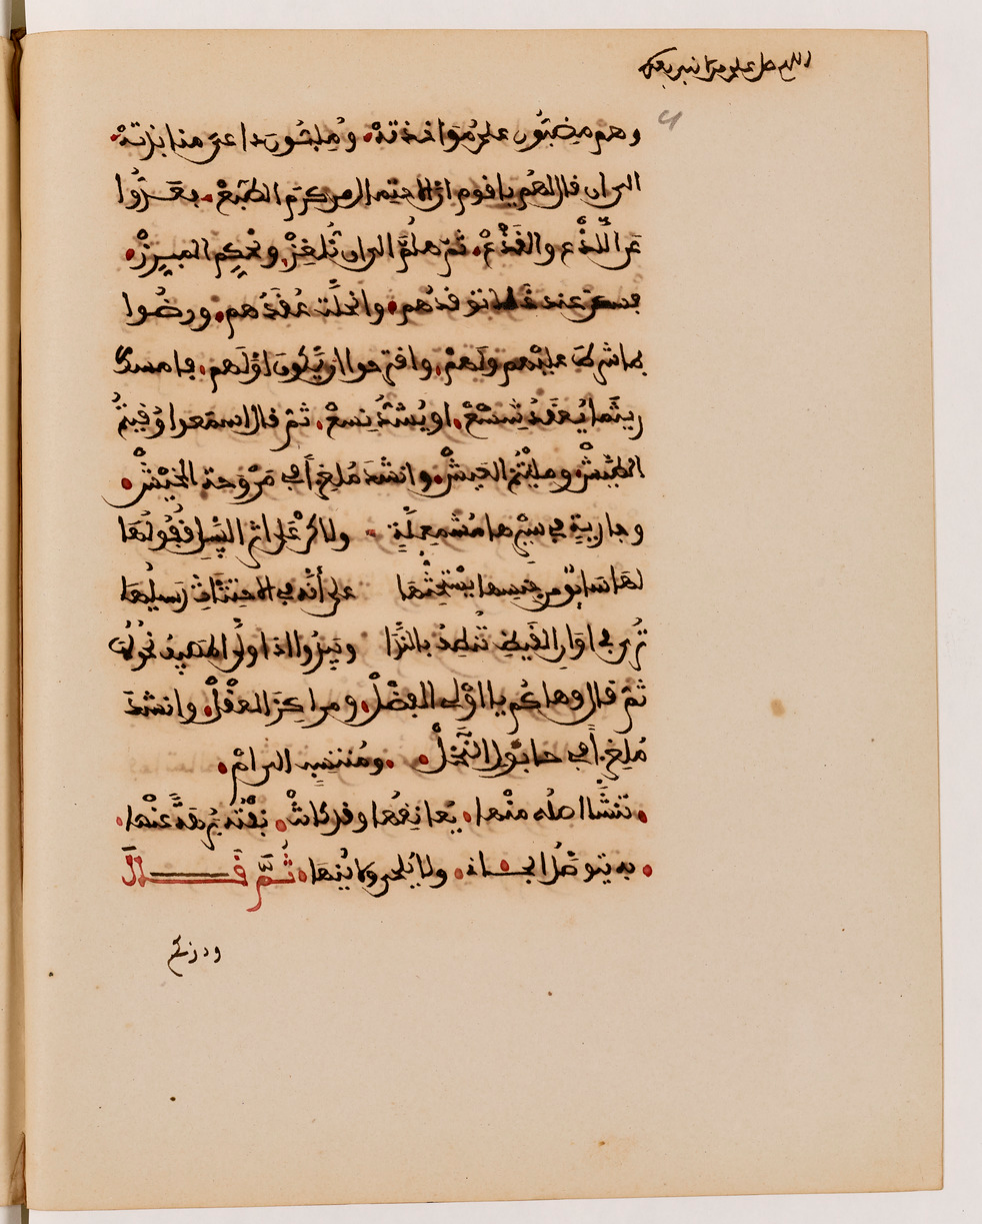 اللهم صل على من لا نبي بعده
وهم مضبّون على مُؤاخذته. ومُلبّون داعى منابذته.
الى ان قال لهُم يا قوم انّ الاحتمال من كرَم الطبْعْ. فعَدُّوا
عن اللّذْع والقَذْعْ. ثمّ هلُمَّ الى ان نُلغِزْ. ونُحكِم المبرِزْ.
فسكن عند ذلك توقدُهم. وانحلّت عُقَدُهم. ورضُوا
بما شرط عليْهم ولَهمْ. واقترحوا ان يّكون اوّلَهم. فامسك
ريثما يُعقَدُ شِسْعْ. او يُشدُّ نِسعْ. ثمّ قال اسمعوا وُقيتمُ
الطيْشْ. ومليْتُم العَيشْ. وانشدَ مُلغزاً في مَرْوَحة الخَيْشْ.
وجاريةٍ في سيْرها مُشمعلّةٍ ولاكن عَلى اثر المسِير قُفُولُهَا
لها سائقٌ من جنسها يسْتحثّها على أنّه في الاحتثاثِ رَسيلُها
تُرى في اوَارِ القَيظِ تُنطِفُ بالنّدَا ويَبدُوا اذا ولّى المَصِيفُ قُحُولُهَ
ثمّ قال وهاكُم يا اوْلى الفضْلْ. ومراكِزَ العقْلْ. وانشدَ
مُلغزاً في حابُول النّخلْ. ومُنتسِبٍ الى امّ.
. تنشّا اصلُه منْها. يّعانِقُها وقد كانتْ. نفتْهُ بُرهةً عنْها.
. به يتوصّلُ الجانى. ولا يُلحى ولا يُنهَا. ثُمَّ قَالَ
ودونكم